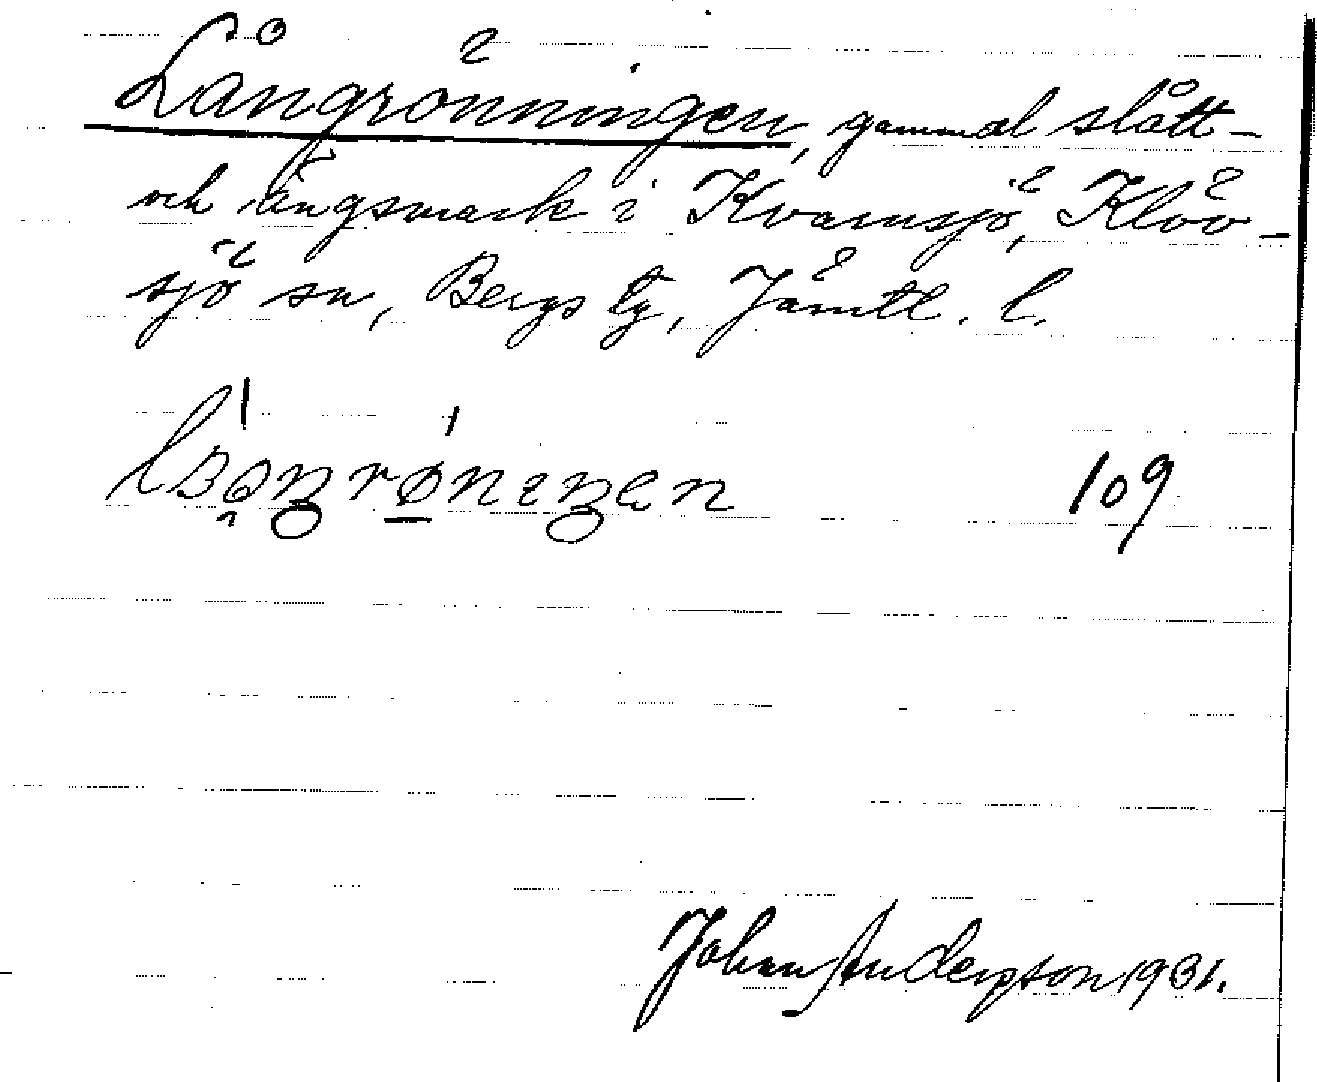 Långrönningen, gammal slått-
och ängsmark i Kvarnsjö, Klöv-
sjö sn, Bergs tg, Jämtl. l.
109
Johan Anderson 1931.